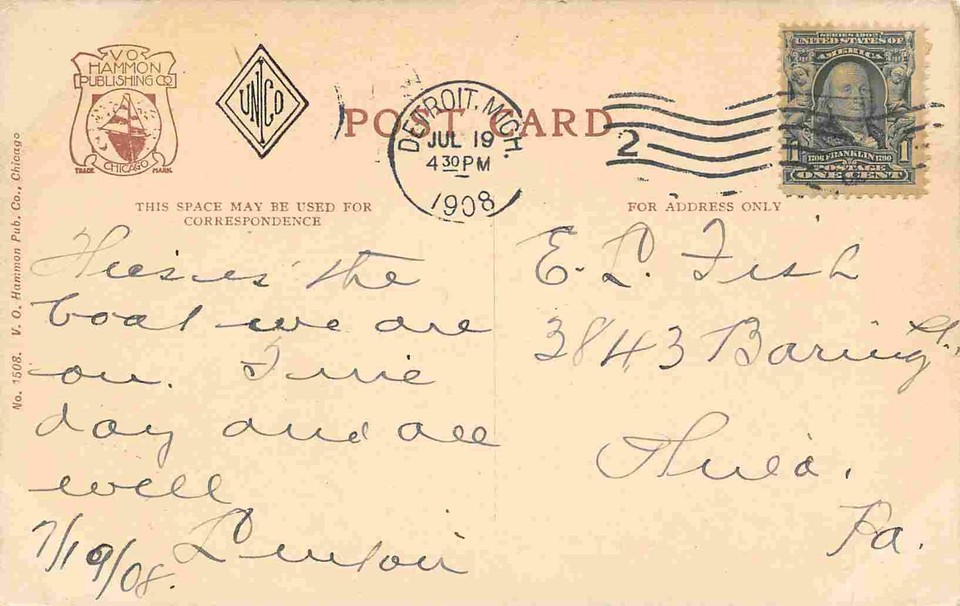 V.O.
HAMMON
PUBLISHING CO
CHICAGO
TRADE MARK
UNICO
POST CARD
DETROIT, MICH.
JUL 19
4 30 PM
1908
2
SERIES 1902
UNITED STATES OF
AMERICA
1 1706 FRANKLIN 1790 1
POSTAGE
ONE CENT
THIS SPACE MAY BE USED FOR
CORRESPONDENCE
FOR ADDRESS ONLY
No. 1508. V. O. Hammon Pub. Co., Chicago
This is the
boat we are
on. Fine
day and all
well
7/19/08.
E. L. Fish
3843 Baring St.,
Phila.
Pa.